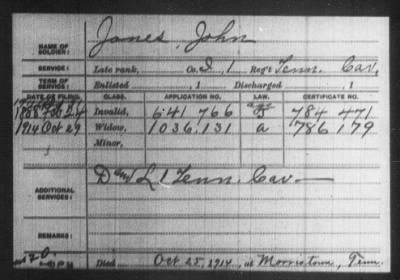 NAME OF SOLDIER: Jones, John
SERVICE: Late rank, Co. D, 1 Reg't Tenn. Cav.
TERM OF SERVICE: Enlisted , 1 Discharged , 1
DATE OF FILING. CLASS. APPLICATION NO. LAW. CERTIFICATE NO.
1888 Invalid, 641 766 784 471
1914 Oct 29 Widow, 1036,131 a 786 179
Minor,
ADDITIONAL SERVICES: D and L 1 Tenn. Cav
REMARKS:
Died Oct 25, 1914, at Morristown, Tenn.